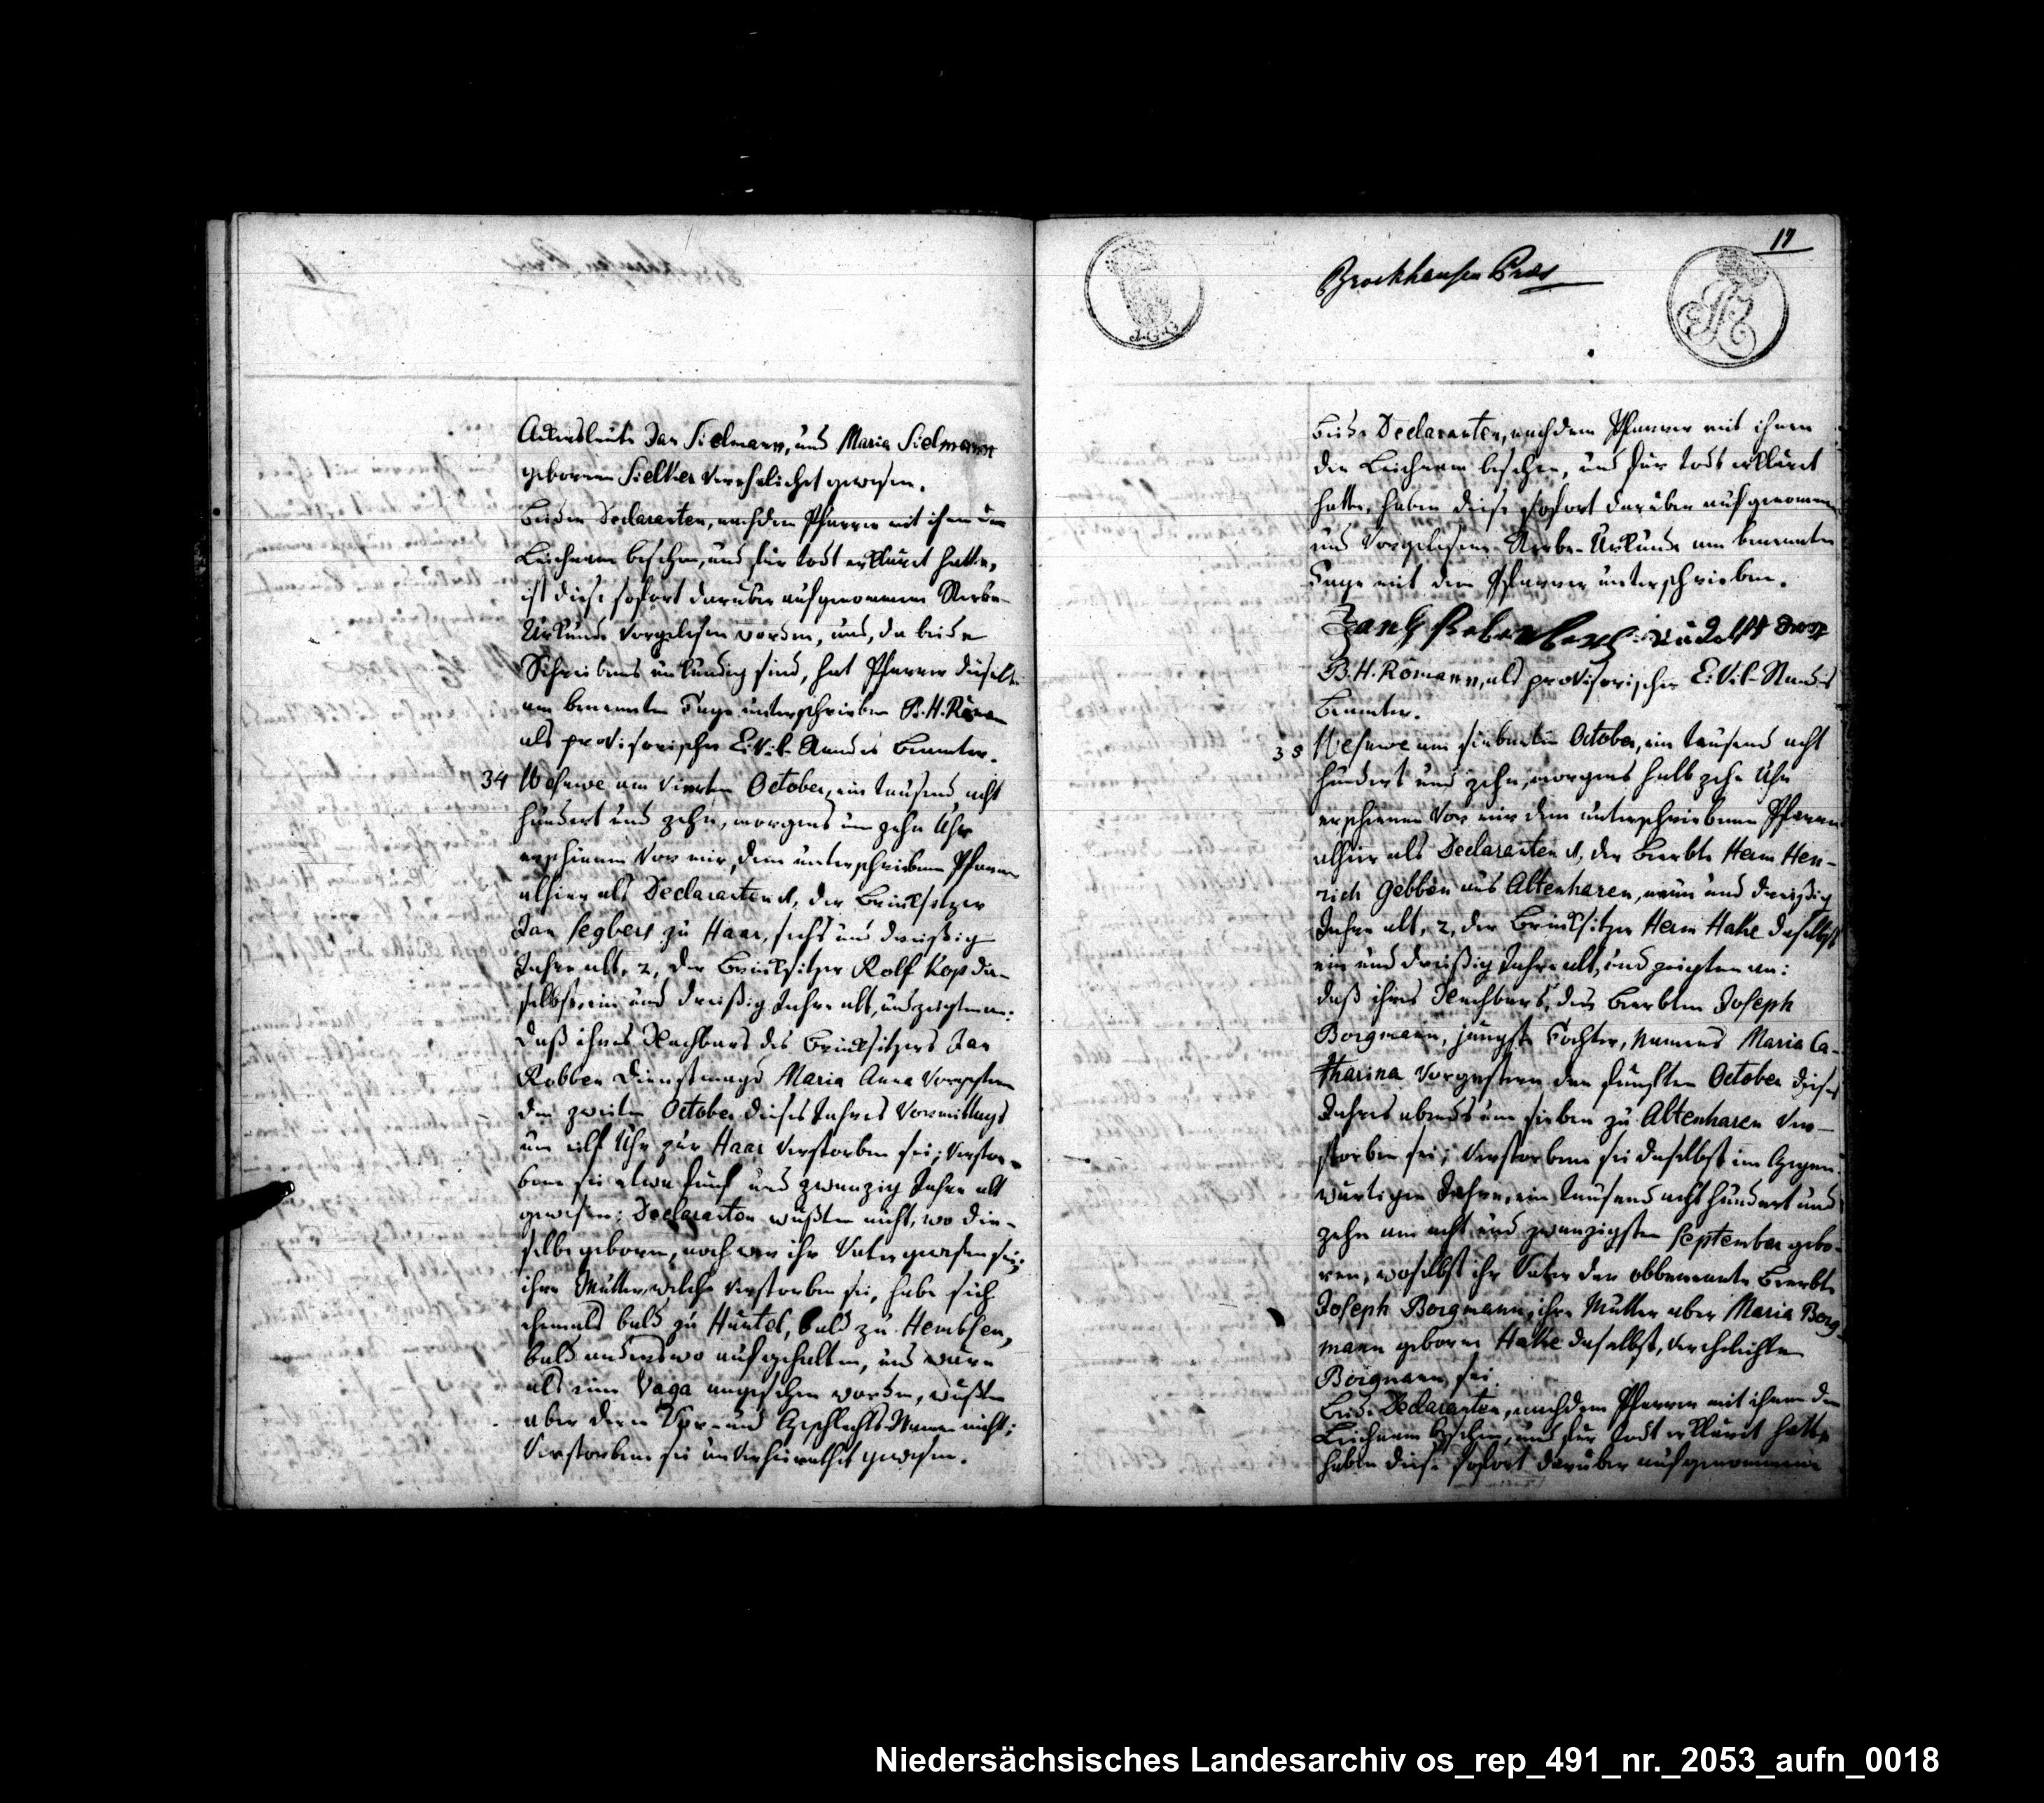 Ackersleute Jan Sielmann, und Maria Sielmann
geboren Sielker verehelichet gewesen.
Beiden Declaranten, nachdem Pfarrer mit ihnen den
Leichnam besehen, und für todt erkläret hatte,
ist diese sofort darüber aufgenommene Sterbe-
Urkunde vorgelesen worden, und, da beide
Schreibens unkundig sind, hat Pfarrer dieselbe
am benannten Tage unterschrieben B. H. Römann
als provisorischer Civil-Standes Beamter.
34 Wesuwe am vierten October, ein tausend acht
hundert und zehn, morgens um zehn Uhr
erschienen vor mir, dem unterschriebenen Pfarrer
alhier als Declaranten 1, der Brinksitzer
Jan Segbers zu Haar, sechs und dreißig
Jahre alt, 2, der Brinksitzer Rolf Kop da-
selbst, ein und dreißig Jahre alt, und zeigten an:
daß ihres Nachbars des Brinksitzers Jan
Robben Dienstmagd Maria Anna vorgestern
den zweiten October dieses Jahres vormittags
um eilf Uhr zur Haar verstorben sei; Verstor-
bene sei etwa fünf und zwanzig Jahre alt
gewesen; Declaranten wüßten nicht, wo die-
selbe geboren, noch wer ihr Vater gewesen sei;
ihre Mutter, welche verstorben sei, habe sich
ehemals bald zu Huntel, bald zu Hembsen,
bald anderswo aufgehalten, und wäre
als eine Vaga angesehen worden, wüßten
aber deren Vor- und Geschlechts-Namen nicht;
Verstorbene sei unverheirathet gewesen.
17
Brockhausen Präs
Beide Declaranten, nachdem Pfarrer mit ihnen
den Leichnam besehen, und für todt erkläret
hatte, haben diese sofort darüber aufgenommene
und vorgelesene Sterbe-Urkunde am benannten
Tage mit dem Pfarrer unterschrieben.
B. H. Römann, als provisorischer Civil-Standes
Beamter.
35 Wesuwe am siebenten October, ein tausend acht
hundert und zehn, morgens halb zehn Uhr
erschienen vor mir dem unterschriebenen Pfarrer
alhier als Declaranten 1, der Beerbte Herm Hen-
rich Gebben aus Altenharen, neun und dreißig
Jahre alt, 2, der Brinksitzer Herm Hake daselbst
ein und dreißig Jahre alt, und zeigten an:
daß ihres Nachbars, des Beerbten Joseph
Borgmann, jüngste Tochter, Namens Maria Ca-
tharina vorgestern den fünften October dieses
Jahres abends um sieben zu Altenharen ver-
storben sei; Verstorbene sei daselbst im gegen-
wärtigen Jahre, ein tausend acht hundert und
zehn am acht und zwanzigsten September gebo-
ren, woselbst ihr Vater der obbenannte Beerbte
Joseph Borgmann, ihre Mutter aber Maria Borg-
mann geborne Hake daselbst, verehelichte
Borgmann sei.
Beide Declaranten, nachdem Pfarrer mit ihnen den
Leichnam besehen, und für todt erkläret hatte
haben diese sofort darüber aufgenommene
Niedersächsisches Landesarchiv os_rep_491_nr._2053_aufn_0018